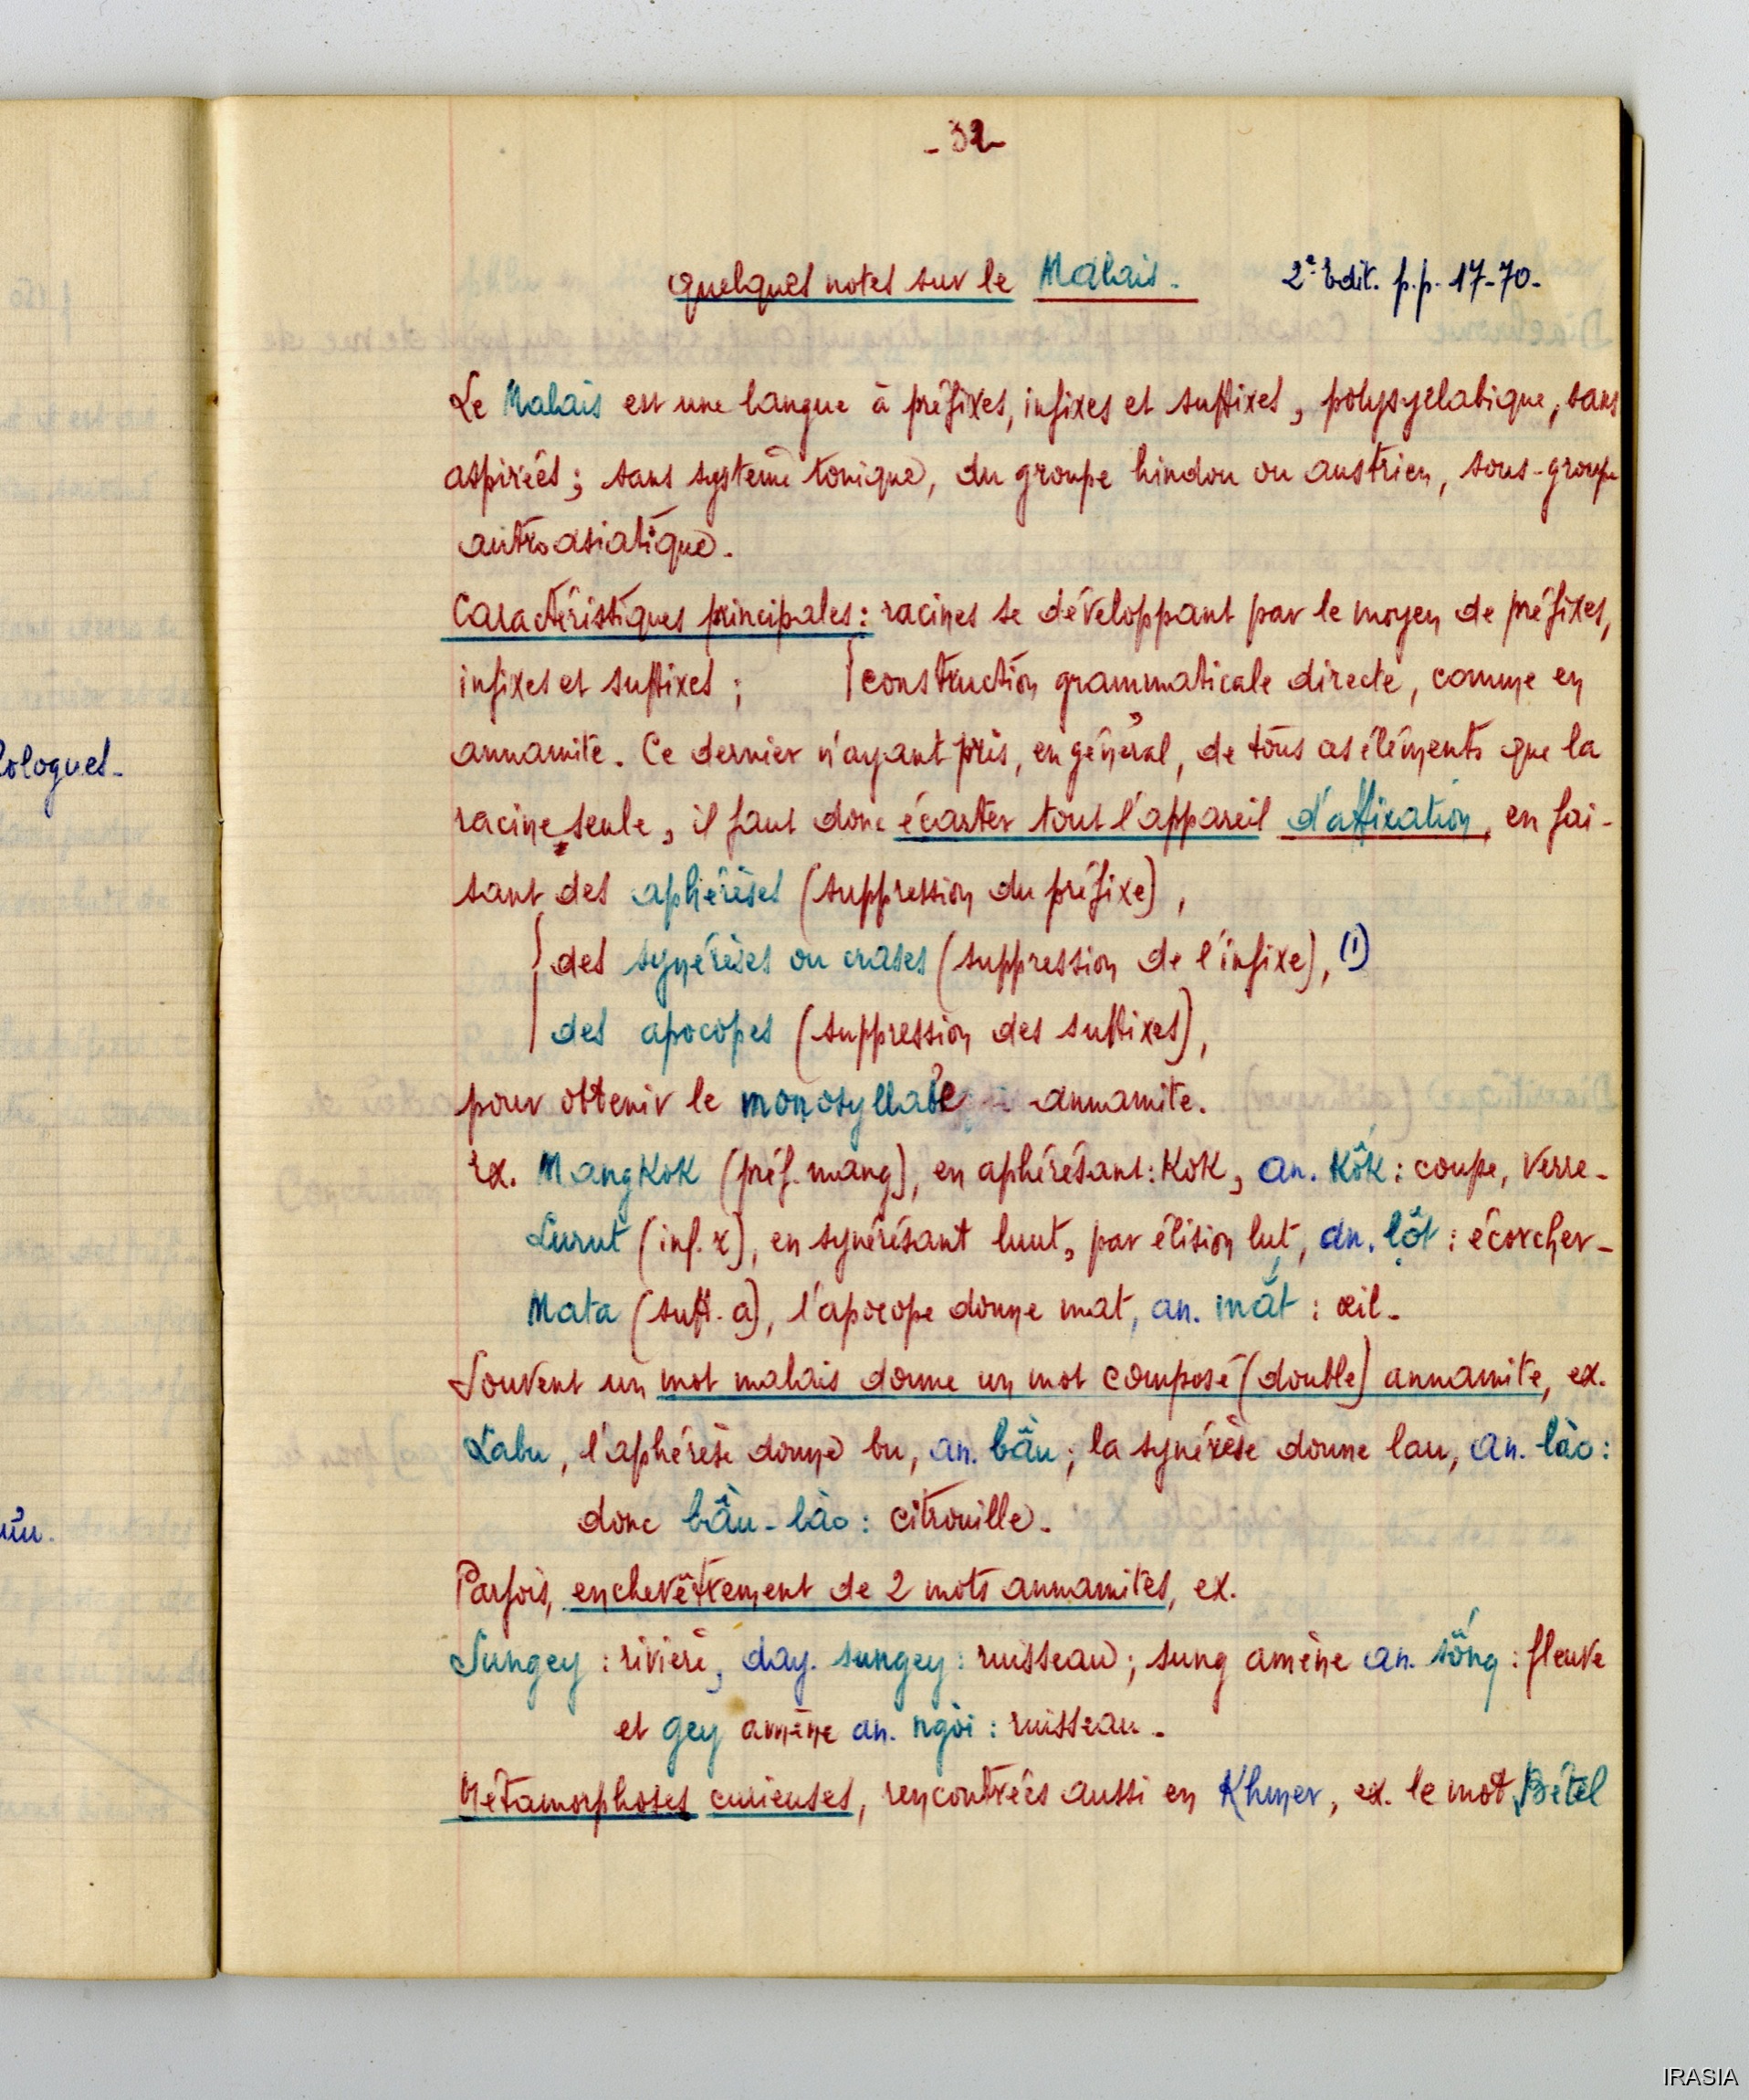 - 32 -
Quelques notes sur le Malais. 2e Edit. p.p. 17-70.
Le Malais est une langue à préfixes, infixes et suffixes, polysyllabique, sans
aspirées; sans système tonique, du groupe hindou ou austrien, sous-groupe
autroasiatique.
Caractéristiques principales: racines se développant par le moyen de préfixes,
infixes et suffixes; construction grammaticale directe, comme en
annamite. Ce dernier n'ayant pris, en général, de tous ces éléments que la
racine seule, il faut donc écarter tout l'appareil d'affixation, en fai-
sant des aphérèses (suppression du préfixe),
des synérèses ou crases (suppression de l'infixe), (1)
des apocopes (suppression des suffixes),
pour obtenir le monosyllabe annamite.
Ex. Mangkok (préf. mang), en aphérésant: Kok, an. Kốk: coupe, verre-
Lurut (inf. r), en synérésant luut, par élision lut, an. lột: écorcher-
Mata (suff. a), l'apocope donne mat, an. mắt: œil-
Souvent un mot malais donne un mot composé (double) annamite, ex.
Labu, l'aphérèse donne bu, an. bầu; la synérèse donne lau, an. lào:
donc bầu-lào: citrouille.
Parfois, enchevêtrement de 2 mots annamites, ex.
Sungey: rivière, day. sungey: ruisseau; sung amène an. sông: fleuve
et gey amène an. ngòi: ruisseau.
Métamorphoses curieuses, rencontrées aussi en Khmer, ex. le mot Bétel
ologues.
IRASIA